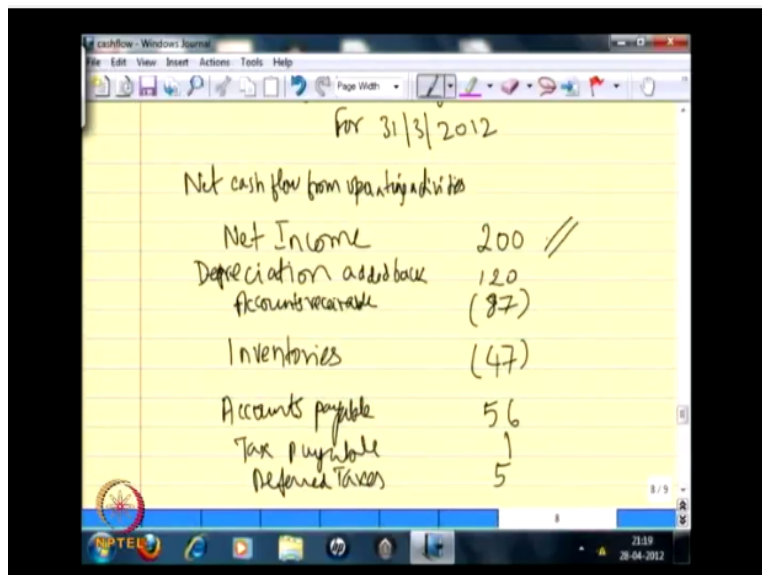 cashflow - Windows Journal
File Edit View Insert Actions Tools Help
Page Width
For 31/3/2012
Net cash flow from operating activities
Net Income 200 //
Depreciation added back 120
Accounts receivable (87)
Inventories (47)
Accounts payable 56
Tax payable 1
Deferred Taxes 5
8/9
8
NPTEL
hp
21:19
28-04-2012